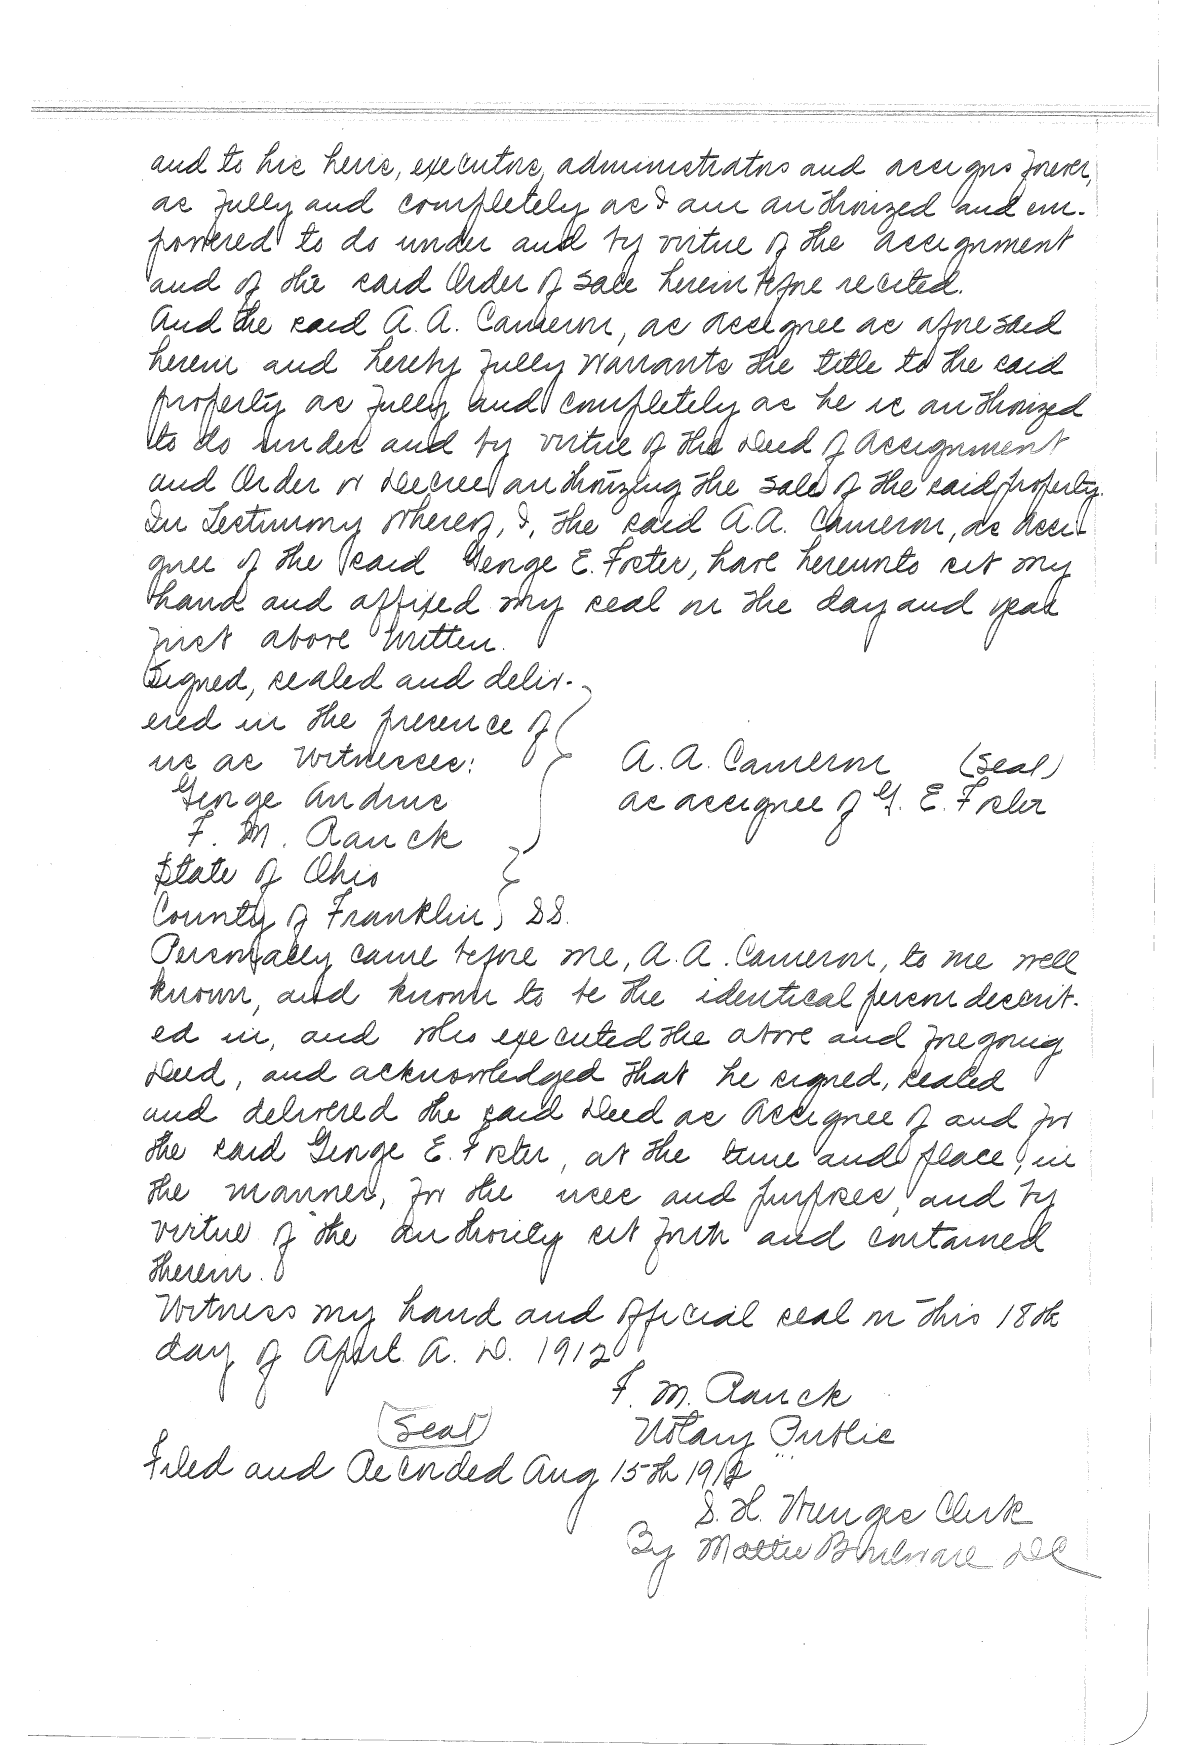 and to his heirs, executors, administrators and assigns forever,
as fully and completely as I am authorized and em-
powered to do under and by virtue of the assignment
and of the said Order of sale herein before recited.
And the said A. A. Cameron, as assignee as aforesaid
herein and hereby fully warrants the title to the said
property as fully and completely as he is authorized
to do under and by virtue of the Deed of Assignment
and Order or Decree authorizing the sale of the said property.
In Testimony Whereof, I, the said A. A. Cameron, as Assi-
gnee of the said George E. Foster, have hereunto set my
hand and affixed my seal on the day and year
first above written.
Signed, sealed and deliv-
ered in the presence of
us as Witnesses:
A. A. Cameron (Seal)
George Andrus
as assignee of G. E. Foster
F. M. Ranck
State of Ohio
County of Franklin } SS.
Personally came before me, A. A. Cameron, to me well
known, and known to be the identical person describ-
ed in, and who executed the above and foregoing
Deed, and acknowledged that he signed, sealed
and delivered the said Deed as Assignee of and for
the said George E. Foster, at the time and place, in
the manner, for the uses and purposes, and by
virtue of the authority set forth and contained
therein.
Witness my hand and official seal on this 18th
day of April A. D. 1912
F. M. Ranck
(Seal) Notary Public
Filed and Recorded Aug 15th 1912
S. H. Clerk
By Mattie Boulware DC